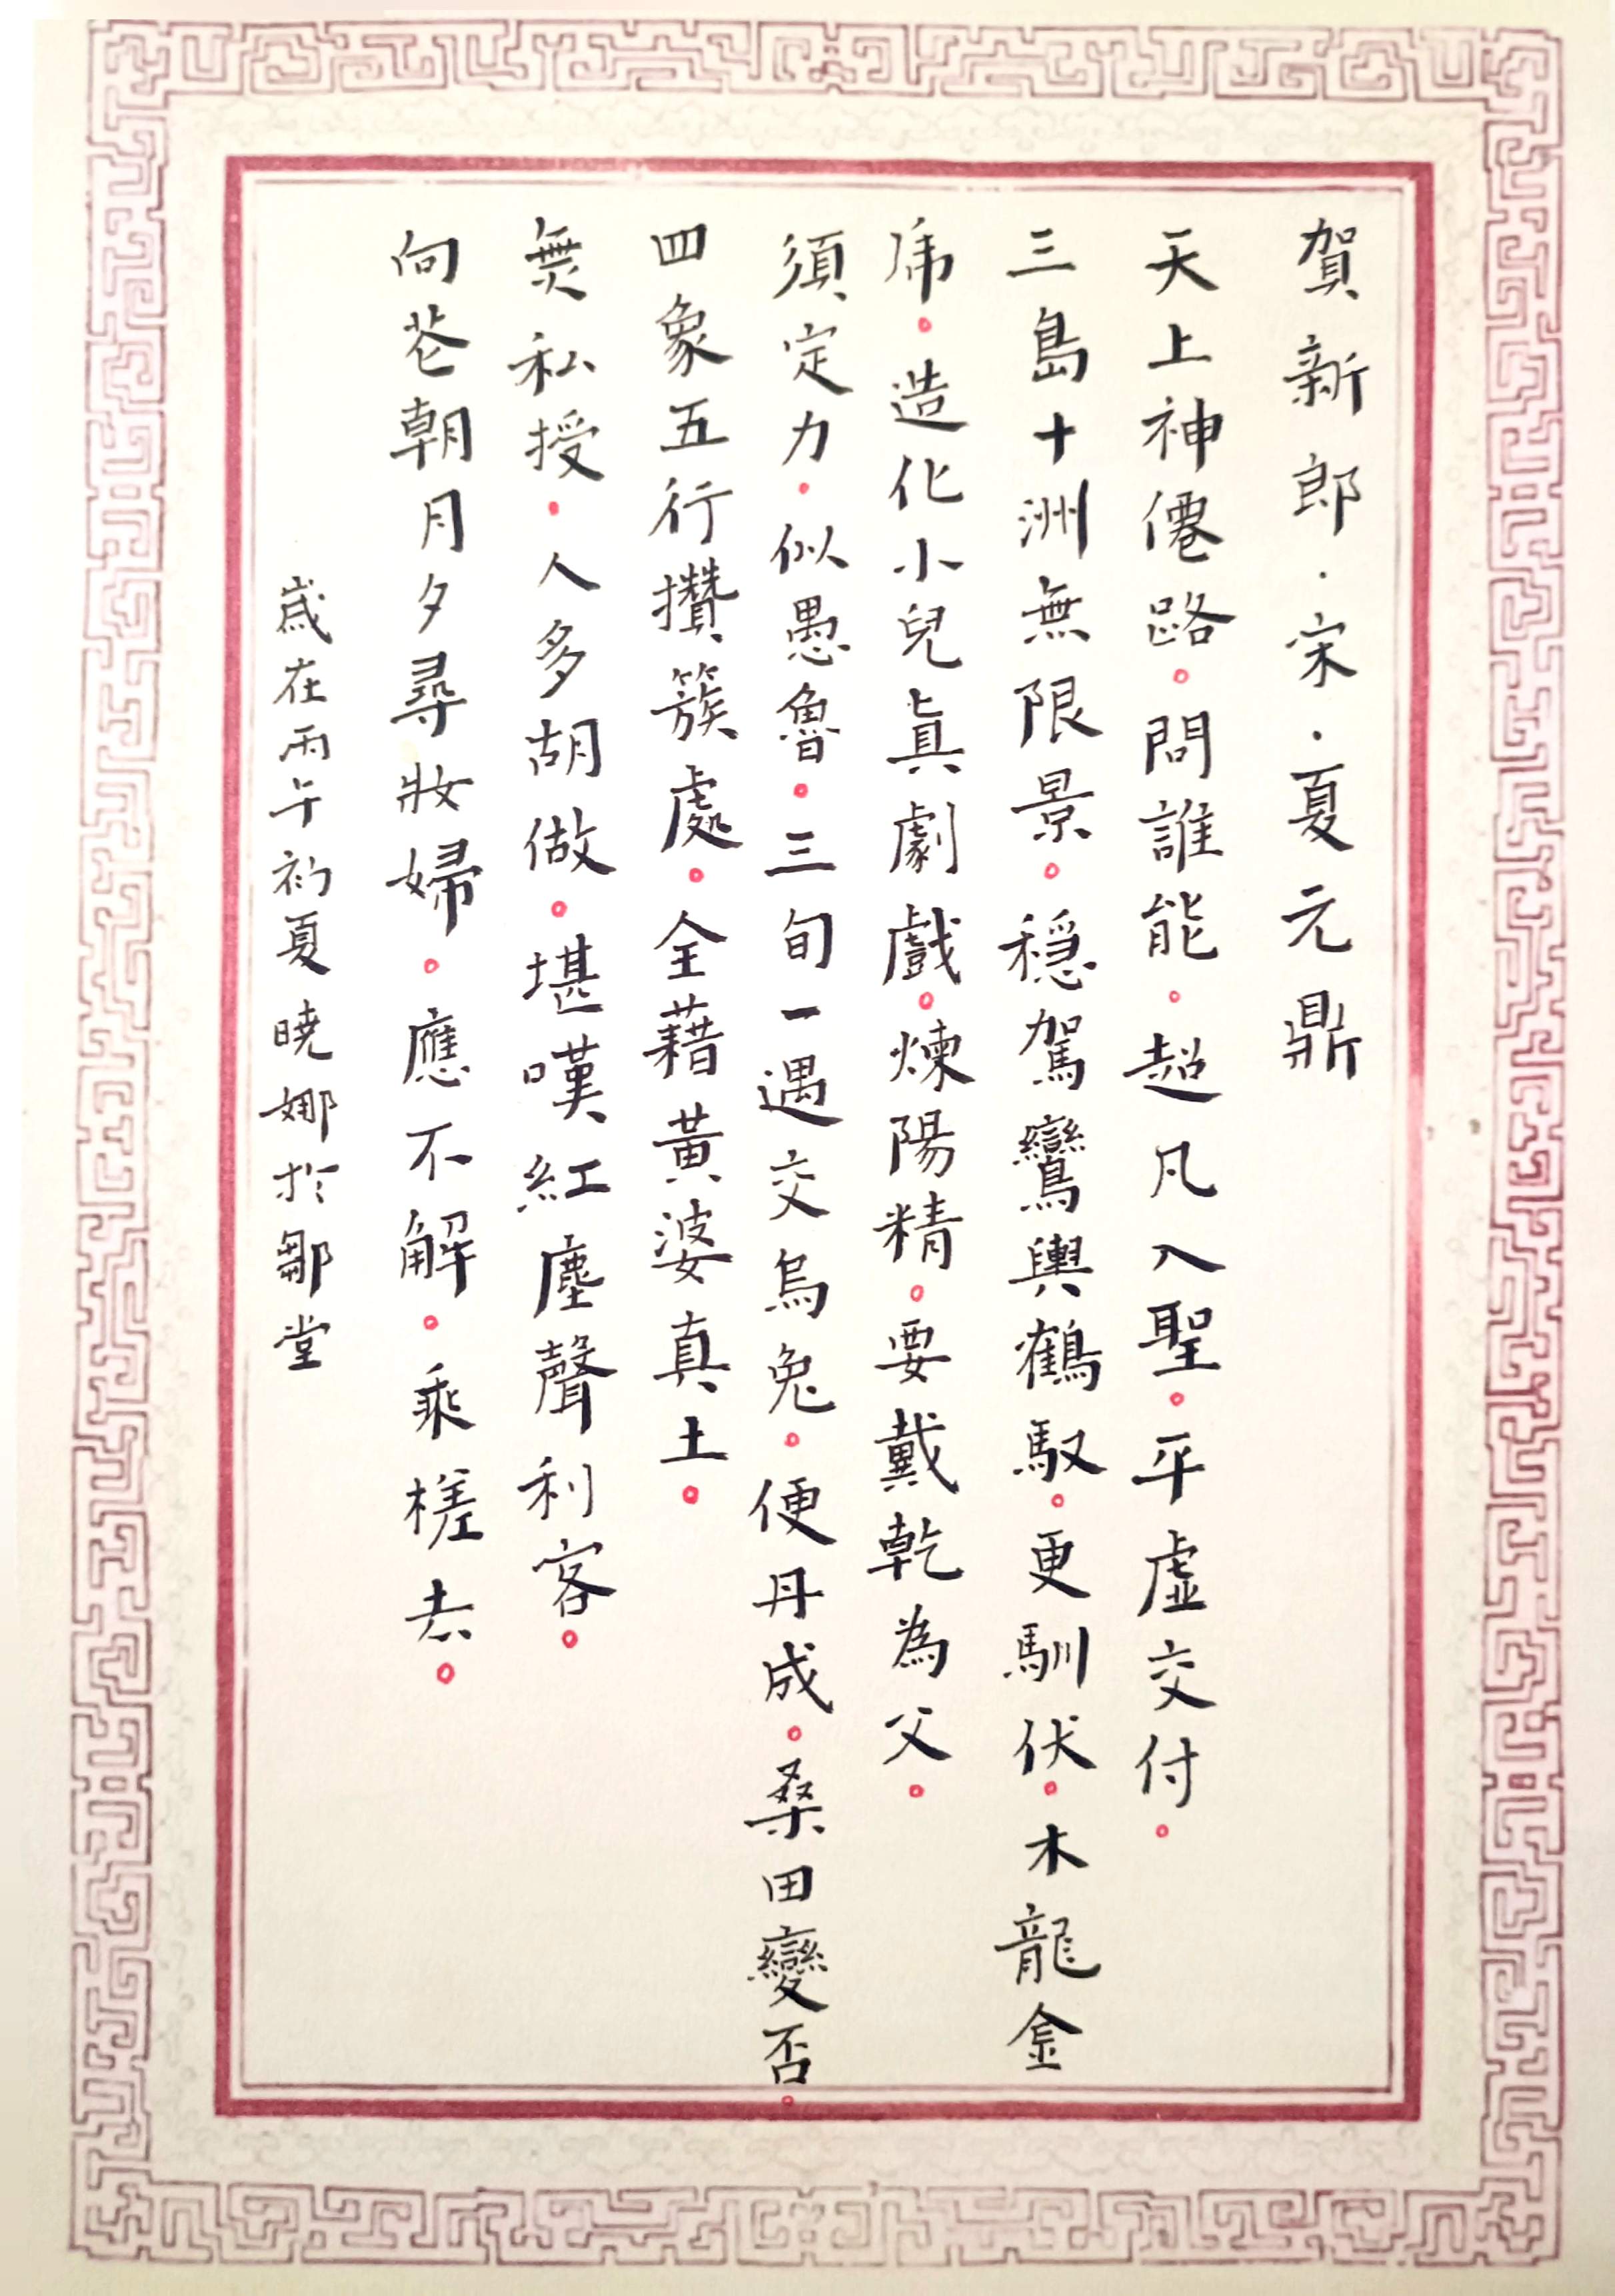 賀新郎·宋·夏元鼎
天上神僊路。問誰能。超凡入聖。平虛交付。
三島十洲無限景。穩駕鸞輿鶴馭。更馴伏。木龍金
虎。造化小兒真劇戲。煉陽精。要戴乾為父。
須定力。似愚魯。三旬一遇交烏兔。便丹成。桑田變否。
四象五行攢簇處。全藉黃婆真土。
無私授。人多胡做。堪嘆紅塵聲利客。
向花朝月夕尋妝婦。應不解。乘槎去。
歲在丙午初夏曉娜於鄒堂